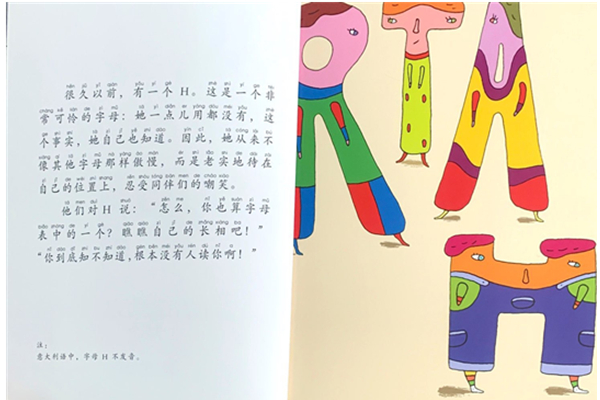 很久以前，有一个 H。这是一个非
常可怜的字母：她一点儿用都没有，这
个事实，她自己也知道。因此，她从来不
像其他字母那样傲慢，而是老实地待在
自己的位置上，忍受同伴们的嘲笑。
他们对 H 说：“怎么，你也算字母
表中的一个？瞧瞧自己的长相吧！”
“你到底知不知道，根本没有人读你啊！”
注：
意大利语中，字母 H 不发音。